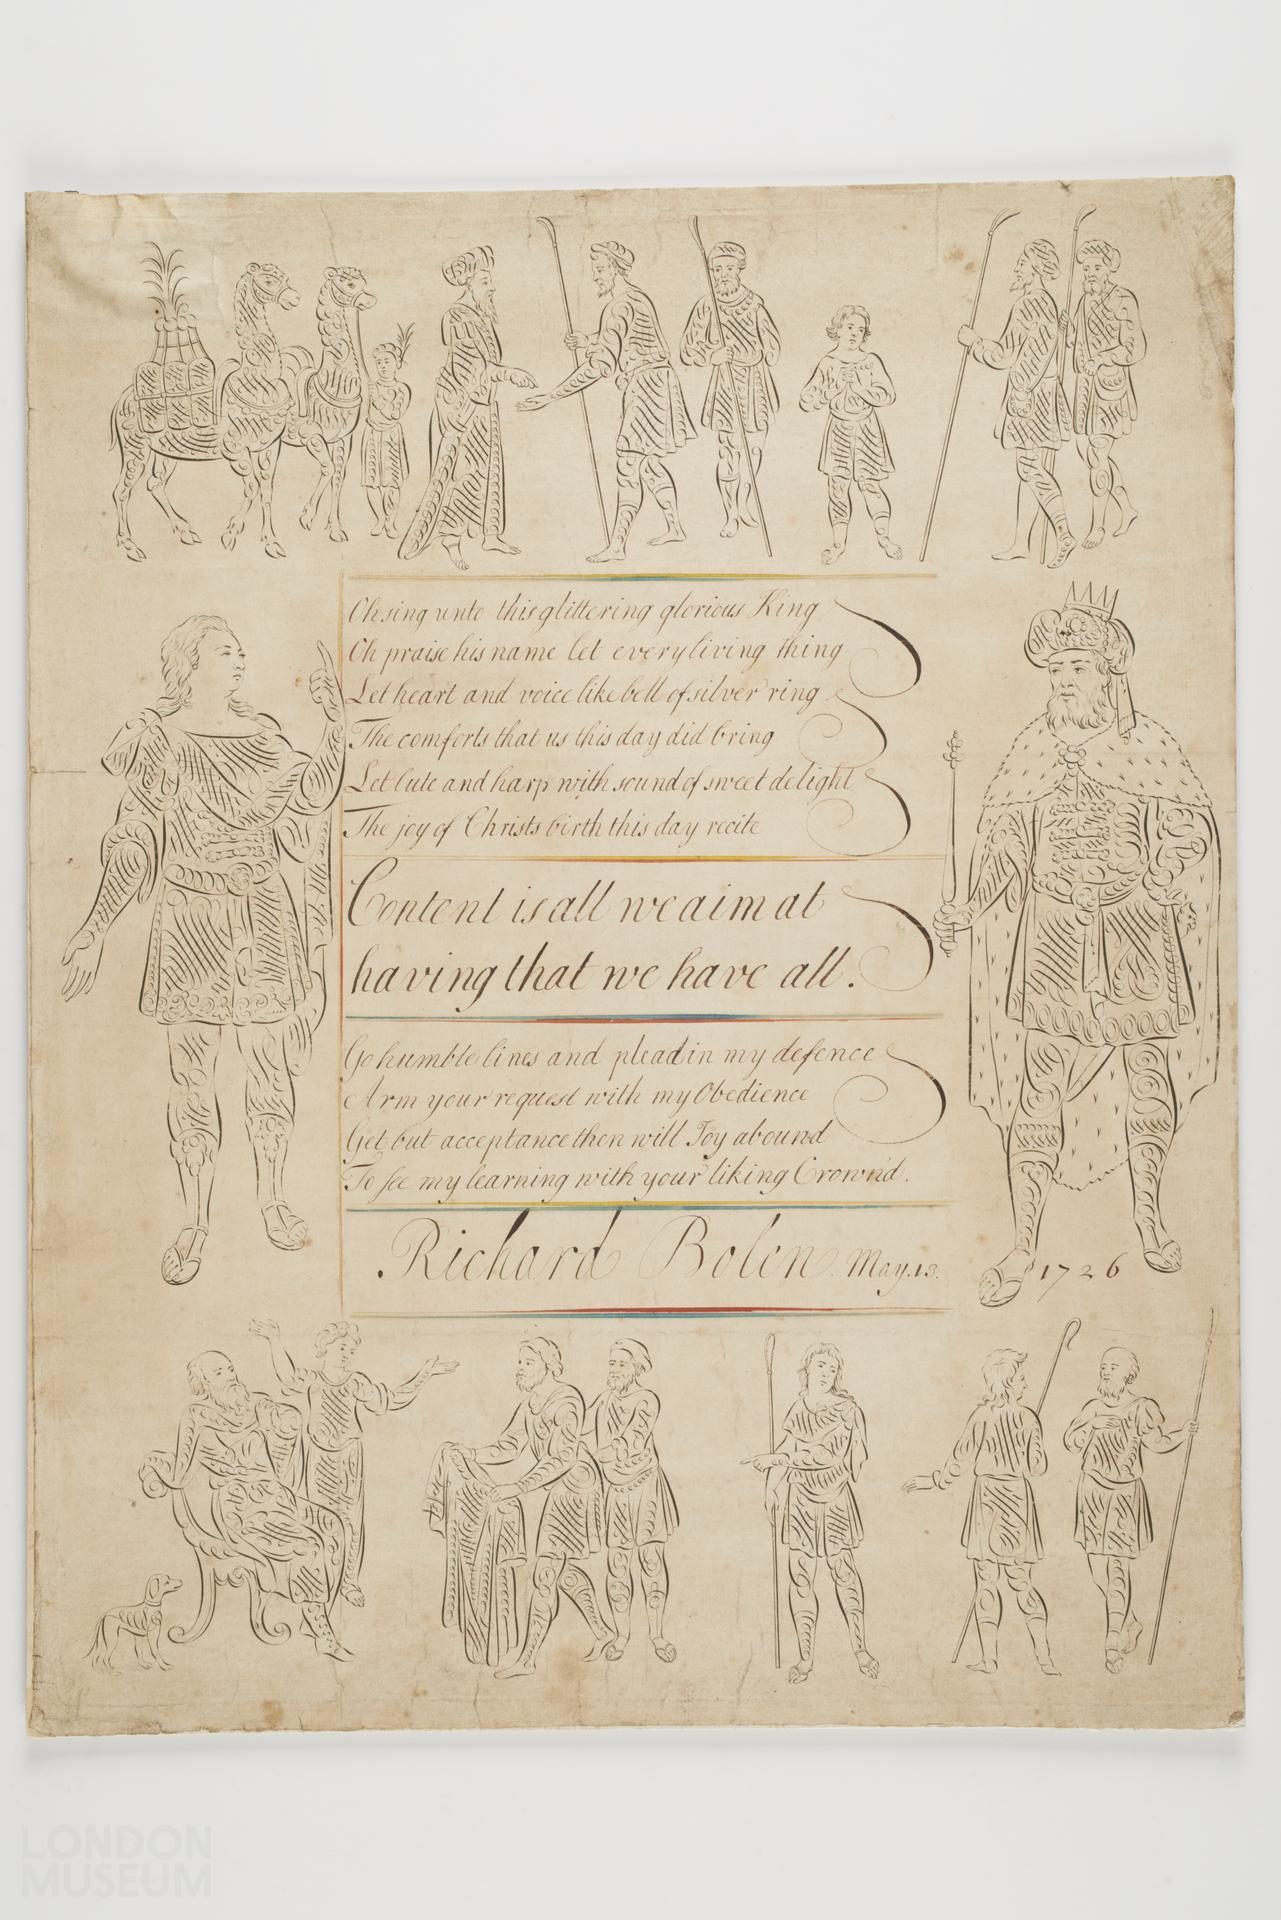 Oh sing unto this glittering glorious King
Oh praise his name let every living thing
Let heart and voice like bell of silver ring
The comforts that us this day did bring
Let lute and harp with sound of sweet delight
The joy of Christs birth this day recite
Content is all we aim at
having that we have all.
Go humble lines and plead in my defence
Arm your request with my Obedience
Get but acceptance then will Joy abound
To see my learning with your liking Crown'd.
Richard Bolen May. 13.
1726
LONDON
MUSEUM